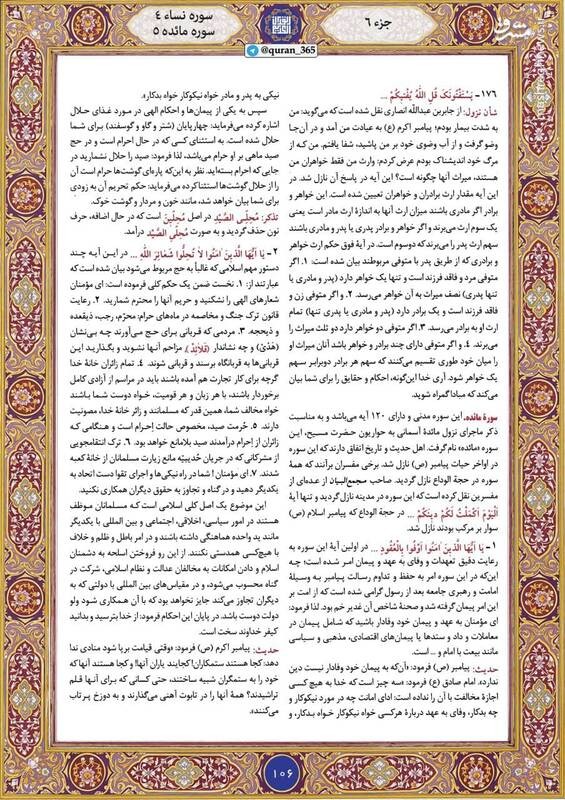 جزء ۶
سوره نساء ۴
سوره مائده ۵
@quran_365
مشرق
۱۷۶ - یَسْتَفْتُونَکَ قُلِ اللَّهُ یُفْتِیکُمْ ...
شأن نزول: از جابربن عبدالله انصاری نقل شده است که می‌گوید: من
به شدت بیمار بودم؛ پیامبر اکرم (ع) به عیادت من آمد و در آن‌جا
وضو گرفت و از آب وضوی خود بر من پاشید، شفا یافتم. من که از
مرگ خود اندیشناک بودم عرض کردم: وارث من فقط خواهران من
هستند، میراث آنها چگونه است؟ این آیه در پاسخ آن نازل شد. در
این آیه مقدار ارث برادران و خواهران تعیین شده است. این خواهر و
برادر اگر مادری باشند میزان ارث آنها به اندازۀ ارث مادر است یعنی
یک سوم ارث می‌برند و اگر خواهر و برادر پدری یا پدر و مادری باشند
سهم ارث پدر را می‌برند که دوسوم است. در آیۀ فوق حکم ارث خواهر
و برادری که از طریق پدر با متوفی مربوطند بیان شده است: ۱. اگر
متوفی مرد و فاقد فرزند است و تنها یک خواهر دارد (پدر و مادری یا
تنها پدری) نصف میراث به آن خواهر می‌رسد. ۲. و اگر متوفی زن و
فاقد فرزند است و یک برادر دارد (پدر و مادری یا پدری تنها) تمام
ارث او به برادر می‌رسد. ۳. اگر متوفی دو خواهر دارد دو ثلث میراث را
می‌برند. ۴. و اگر متوفی دارای چند برادر و خواهر باشد آنان میراث او
را میان خود طوری تقسیم می‌کنند که سهم هر برادر دوبرابر سهم
یک خواهر شود. آری خدا این‌گونه، احکام و حقایق را برای شما بیان
می‌کند که مبادا گمراه شوید.
سورهٔ مائده. این سوره مدنی و دارای ۱۲۰ آیه می‌باشد و به مناسبت
ذکر ماجرای نزول مائدۀ آسمانی به حواریون حضرت مسیح، این
سوره «مائده» نام گرفت. اهل حدیث و تاریخ اتفاق دارند که این سوره
در اواخر حیات پیامبر (ص) نازل شد. برخی مفسران برآنند که همۀ
سوره در حجة الوداع نازل گردید. صاحب مجمع‌البیان از عده‌ای از
مفسرین نقل کرده است که این سوره در مدینه نازل گردید و تنها آیۀ
اَلْیَوْمَ اَکْمَلْتُ لَکُمْ دینَکُمْ ... در حجة الوداع که پیامبر اسلام (ص)
سوار بر مرکب بودند نازل شد.
۱ - یا اَیُّهَا الَّذینَ امَنُوا اَوْفُوا بِالْعُقُودِ ... در اولین آیۀ این سوره به
رعایت دقیق تعهدات و وفای به عهد و پیمان امر شده است؛ چه
این‌که در این سوره امر به حفظ و تداوم رسالت پیامبر به وسیلۀ
امامت و رهبری جامعه بعد از رسول گرامی شده است که از امت بر
این امر پیمان گرفته شد و صحنۀ شاخص آن غدیر خم بود. لذا فرمود:
ای مؤمنان به عهد و پیمان خود وفادار باشید که شامل پیمان در
معاملات و داد و ستدها یا پیمان‌های اقتصادی، مذهبی و سیاسی
مانند بیعت با امام و ... است.
حدیث: پیامبر (ص) فرمود: «آن‌که به پیمان خود وفادار نیست دین
ندارد». امام صادق (ع) فرمود: «سه چیز است که خدا به هیچ کسی
اجازۀ مخالفت با آن را نداده است: ادای امانت چه در مورد نیکوکار و
چه بدکار، وفای به عهد دربارۀ هرکسی خواه نیکوکار خواه بدکار، و
نیکی به پدر و مادر خواه نیکوکار خواه بدکار».
سپس به یکی از پیمان‌ها و احکام الهی در مورد غذای حلال
اشاره کرده می‌فرماید: چهارپایان (شتر و گاو و گوسفند) برای شما
حلال شده است. به استثنای کسی که در حال احرام است و در حج
صید ماهی بر او حرام می‌باشد، لذا فرمود: صید را حلال نشمارید در
جایی که احرام بسته‌اید. نظر به این‌که پاره‌ای گوشت‌ها حرام است آن
را از حلال گوشت‌ها استثنا کرده می‌فرماید: حکم تحریم آن به زودی
برای شما بیان خواهد شد، مانند خون و مردار و گوشت خوک.
تذکر: مُحِلِّی الصَّیْدِ در اصل مُحِلّینَ است که در حال اضافه، حرف
نون حذف گردید و به صورت مُحِلِّی الصَّیْدِ درآمد.
۲ - یا اَیُّهَا الَّذینَ امَنُوا لا تُحِلُّوا شَعائِرَ اللَّهِ ... در این آیه چند
دستور مهم اسلامی که غالباً به حج مربوط می‌شود بیان شده است که
عبارتند از: ۱. نخست ضمن یک حکم کلی فرموده است: ای مؤمنان
شعارهای الهی را نشکنید و حریم آنها را محترم شمارید. ۲. رعایت
قانون ترک جنگ و مخاصمه در ماه‌های حرام: محرّم، رجب، ذیقعده
و ذیحجه. ۳. مردمی که قربانی برای حج می‌آورند چه بی‌نشان
(هَدْیَ) و چه نشاندار (قَلائِدَ)، مزاحم آنها نشوید و بگذارید این
قربانی‌ها به قربانگاه برسند و قربانی شوند. ۴. تمام زائران خانۀ خدا
گرچه برای کار تجارت هم آمده باشند باید در مراسم از آزادی کامل
برخوردار باشند، با هر زبان و هر قومیت، خواه دوست شما باشند
خواه مخالف شما، همین قدر که مسلمانند و زائر خانۀ خدا، مصونیت
دارند. ۵. حُرمت صید، مخصوص حالت اِحرام است و هنگامی که
زائران از اِحرام درآمدند صید بلامانع خواهد بود. ۶. ترک انتقامجویی
از مشرکانی که در جریان حُدیبیّه مانع زیارت مسلمانان از خانۀ کعبه
شدند. ۷. ای مؤمنان! شما در راه نیکی‌ها و اجرای تقوا دست اتحاد به
یکدیگر دهید و در گناه و تجاوز به حقوق دیگران همکاری نکنید.
این موضوع یک اصل کلی اسلامی است که مسلمانان موظف
هستند در امور سیاسی، اخلاقی، اجتماعی و بین المللی با یکدیگر
مانند ید واحده هماهنگی داشته باشند و در امر باطل و ظلم و خلاف
با هیچ‌کسی همدستی نکنند. از این رو فروختن اسلحه به دشمنان
اسلام و دادن امکانات به مخالفان عدالت و نظام اسلامی، شرکت در
گناه محسوب می‌شود، و در مقیاس‌های بین المللی با دولتی که به
دیگران تجاوز می‌کند جایز نخواهد بود که با آن همکاری شود ولو
دولت دوست باشد. در پایان این احکام فرمود: از خدا بترسید و بدانید
کیفر خداوند سخت است.
حدیث: پیامبر اکرم (ص) فرمود: «وقتی قیامت برپا شود منادی ندا
دهد: کجا هستند ستمکاران؟ کجایند یاران آنها؟ و کجا هستند آنها که
خود را به ستمگران شبیه ساختند، حتی کسانی که برای آنها قلم
تراشیدند؟ همۀ آنها را در تابوت آهنی می‌گذارند و به دوزخ پرتاب
می‌کنند».
۱۰۶